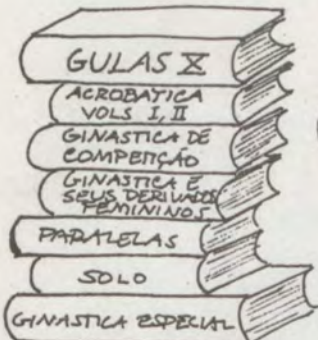 GULAS X
ACROBATICA
VOLS I, II
GINASTICA DE
COMPETIÇÃO
GINASTICA E
SEUS DERIVADOS
FEMININOS
PARALELAS
SOLO
GINASTICA ESPECIAL